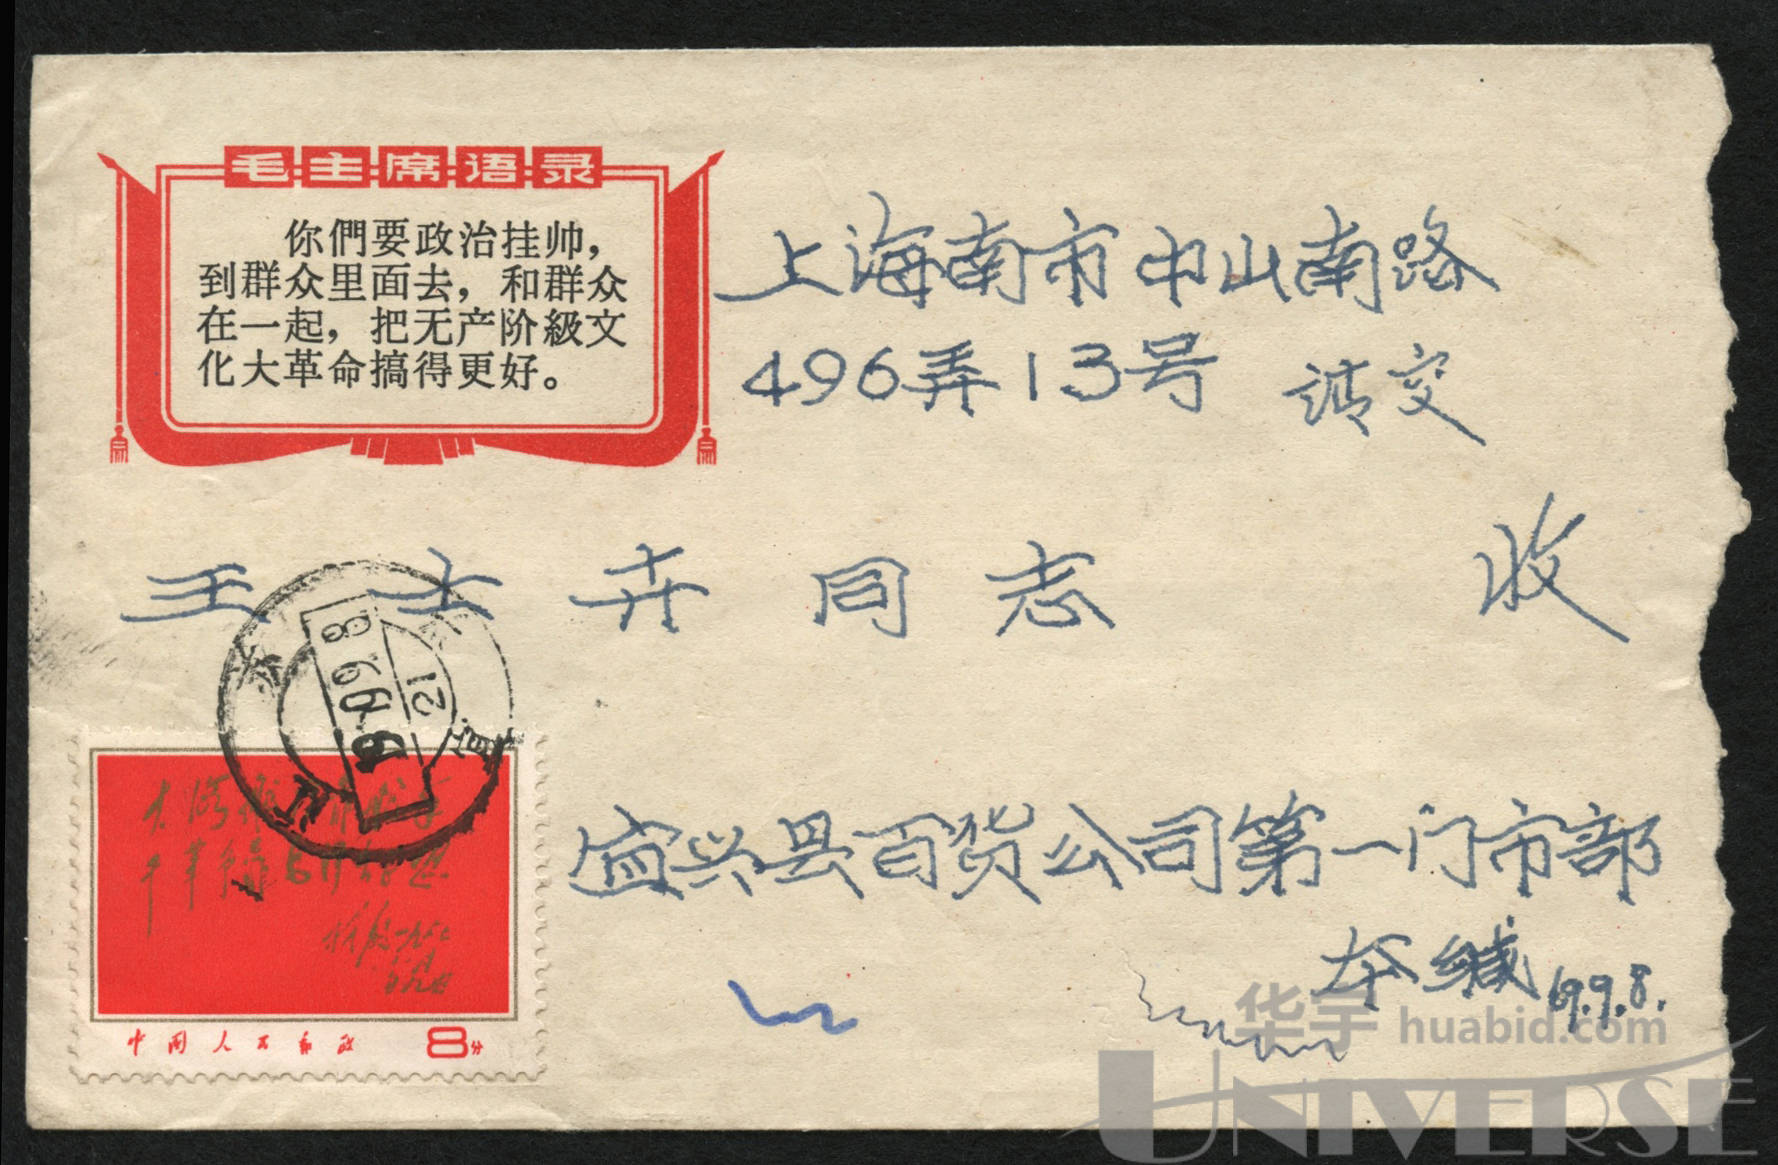 毛主席语录
你們要政治挂帅，
到群众里面去，和群众
在一起，把无产阶級文
化大革命搞得更好。
上海南市中山南路
496弄13号 请交
王士卉同志 收
1969.9.8
21
江
宜
大海航行靠舵手
干革命靠毛泽东思想
中国人民邮政 8分
宜兴县百货公司第一门市部
缄 69.9.8.
华宇 huabid.com
UNIVERSE